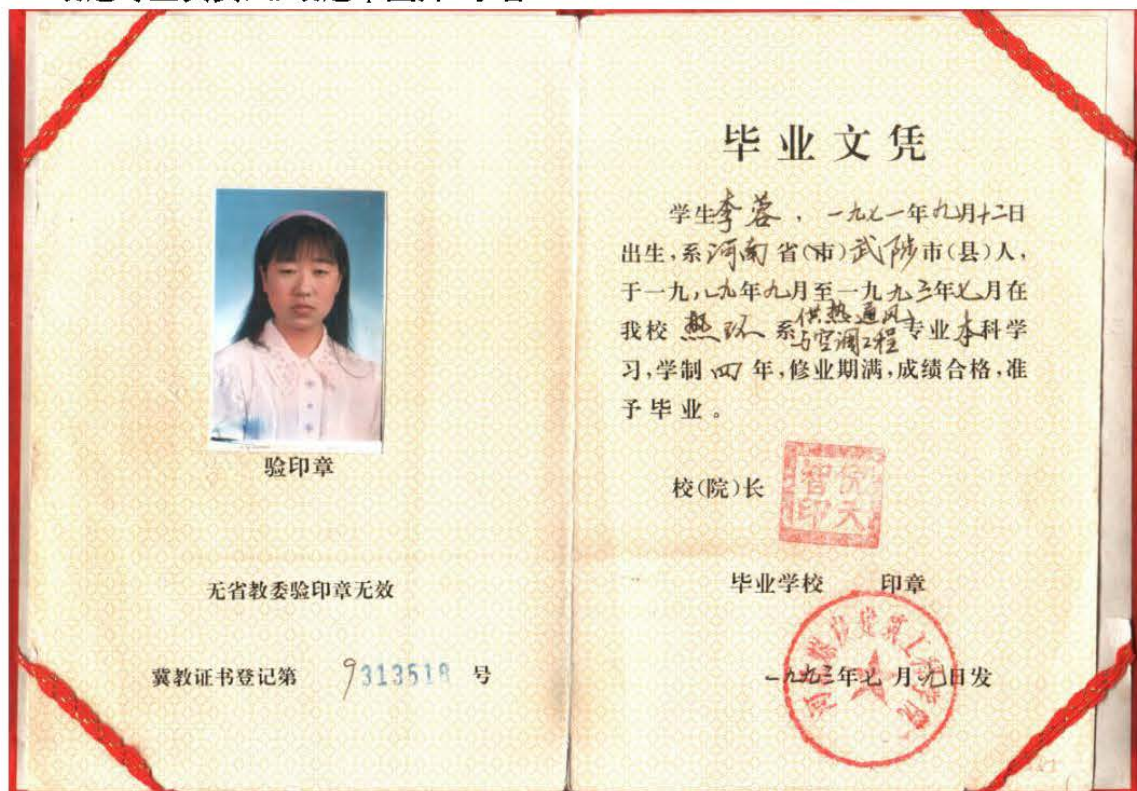 验印章
无省教委验印章无效
冀教证书登记第 9313518 号
毕业文凭
学生李蓉，一九七一年九月十二日
出生，系河南省(市)武陟市(县)人，
于一九八九年九月至一九九三年七月在
我校热环系供热通风与空调工程专业本科学
习，学制四年，修业期满，成绩合格，准
予毕业。
校(院)长
侯天智印
毕业学校 印章
河北煤炭建筑工程学院
一九九三年七月九日发